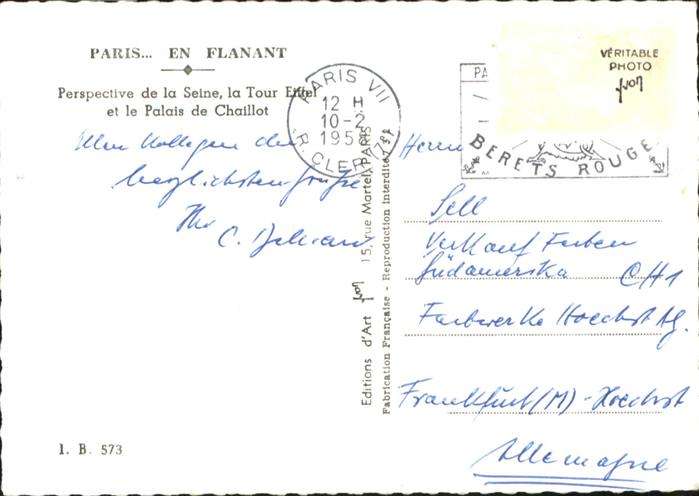 PARIS... EN FLANANT
Perspective de la Seine, la Tour Eiffel
et le Palais de Chaillot
Allen Kollegen die
herzlichsten Grüße
Ihr
C.
I. B. 573
Editions d'Art Yvon 15, rue Martel, PARIS
Fabrication Française - Reproduction Interdite
PARIS VII
12 H
10-2
195
R. CLER
PA
BERETS ROUGE
VÉRITABLE
PHOTO
Yvon
Herrn
Sell
Verkauf Farben
Südamerika CH1
Farbwerke Hoechst AG.
Frankfurt (M) - Hoechst
Allemagne